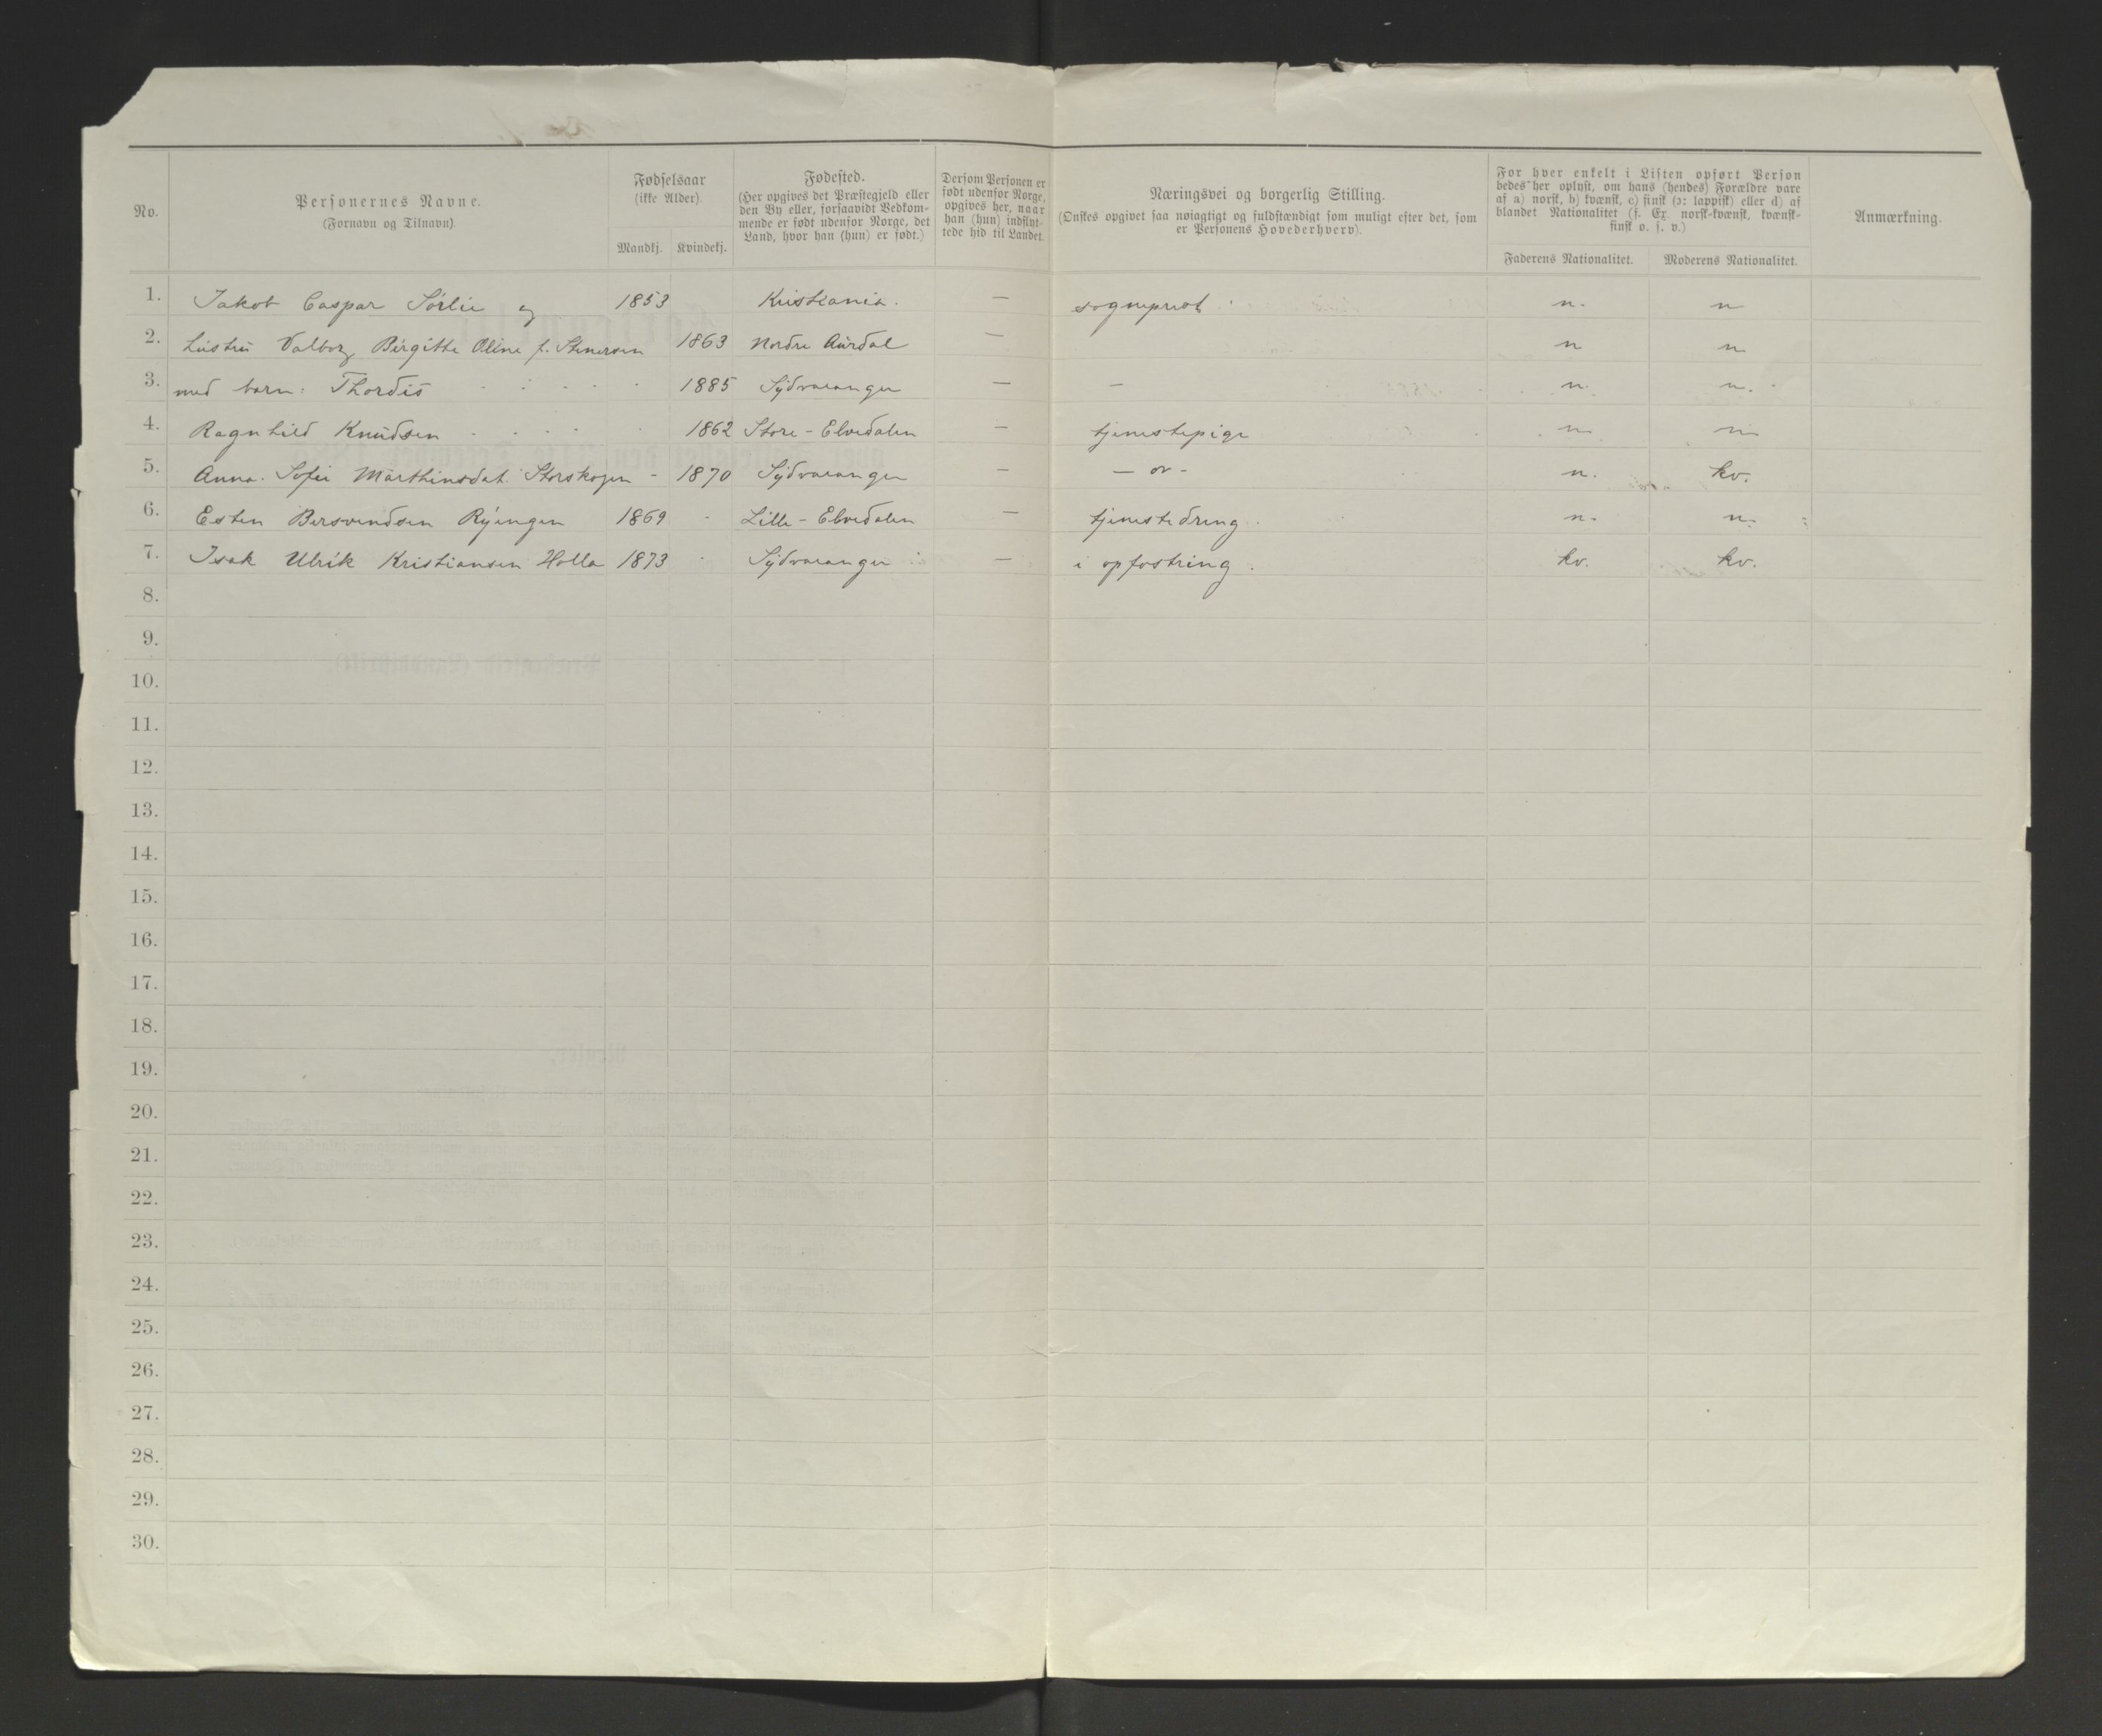 No.
Personernes Navne.
(Fornavn og Tilnavn).
Fødselsaar
(ikke Alder).
Mandkj. Kvindekj.
Fødested.
(Her opgives det Præstegjeld eller
den By eller, forsaavidt Vedkom-
mende er født udenfor Norge, det
Land, hvor han (hun) er født.)
Dersom Personen er
født udenfor Norge,
opgives her, naar
han (hun) indflyt-
tede hid til Landet.
Næringsvei og borgerlig Stilling.
(Ønskes opgivet saa nøiagtigt og fuldstændigt som muligt efter det, som
er Personens Hovederhverv).
For hver enkelt i Listen opført Person
bedes her oplyst, om hans (hendes) Forældre vare
af a) norsk, b) kvænsk, c) finsk (ɔ: lappisk) eller d) af
blandet Nationalitet (f. Ex. norsk-kvænsk, kvænsk-
finsk o. s. v.)
Faderens Nationalitet. Moderens Nationalitet.
Anmærkning.
1. Jakob Caspar Sörlie og 1853 Kristiania. — sogneprest n. n
2. hustru Valborg Birgitte Oline f. Stenersen 1863 Nordre Aurdal — n n
3. med barn: Thordis 1885 Sydvaranger — — n. n.
4. Ragnhild Knudsen 1862 Store-Elvedalen — tjenestepige n n
5. Anna Sofie Marthinsdat. Storskogen - 1870 Sydvaranger — — " - n. kv.
6. Esten Bersvendsen Ryengen 1869 Lille-Elvedalen — tjenestedreng n. n.
7. Isak Ulrik Kristiansen Holla 1873 Sydvaranger — i opfostring. kv. kv.
8.
9.
10.
11.
12.
13.
14.
15.
16.
17.
18.
19.
20.
21.
22.
23.
24.
25.
26.
27.
28.
29.
30.